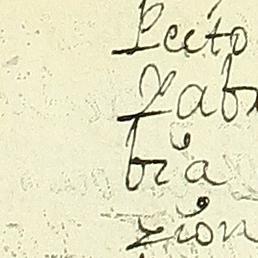 Lecto
Fab
bia
zion